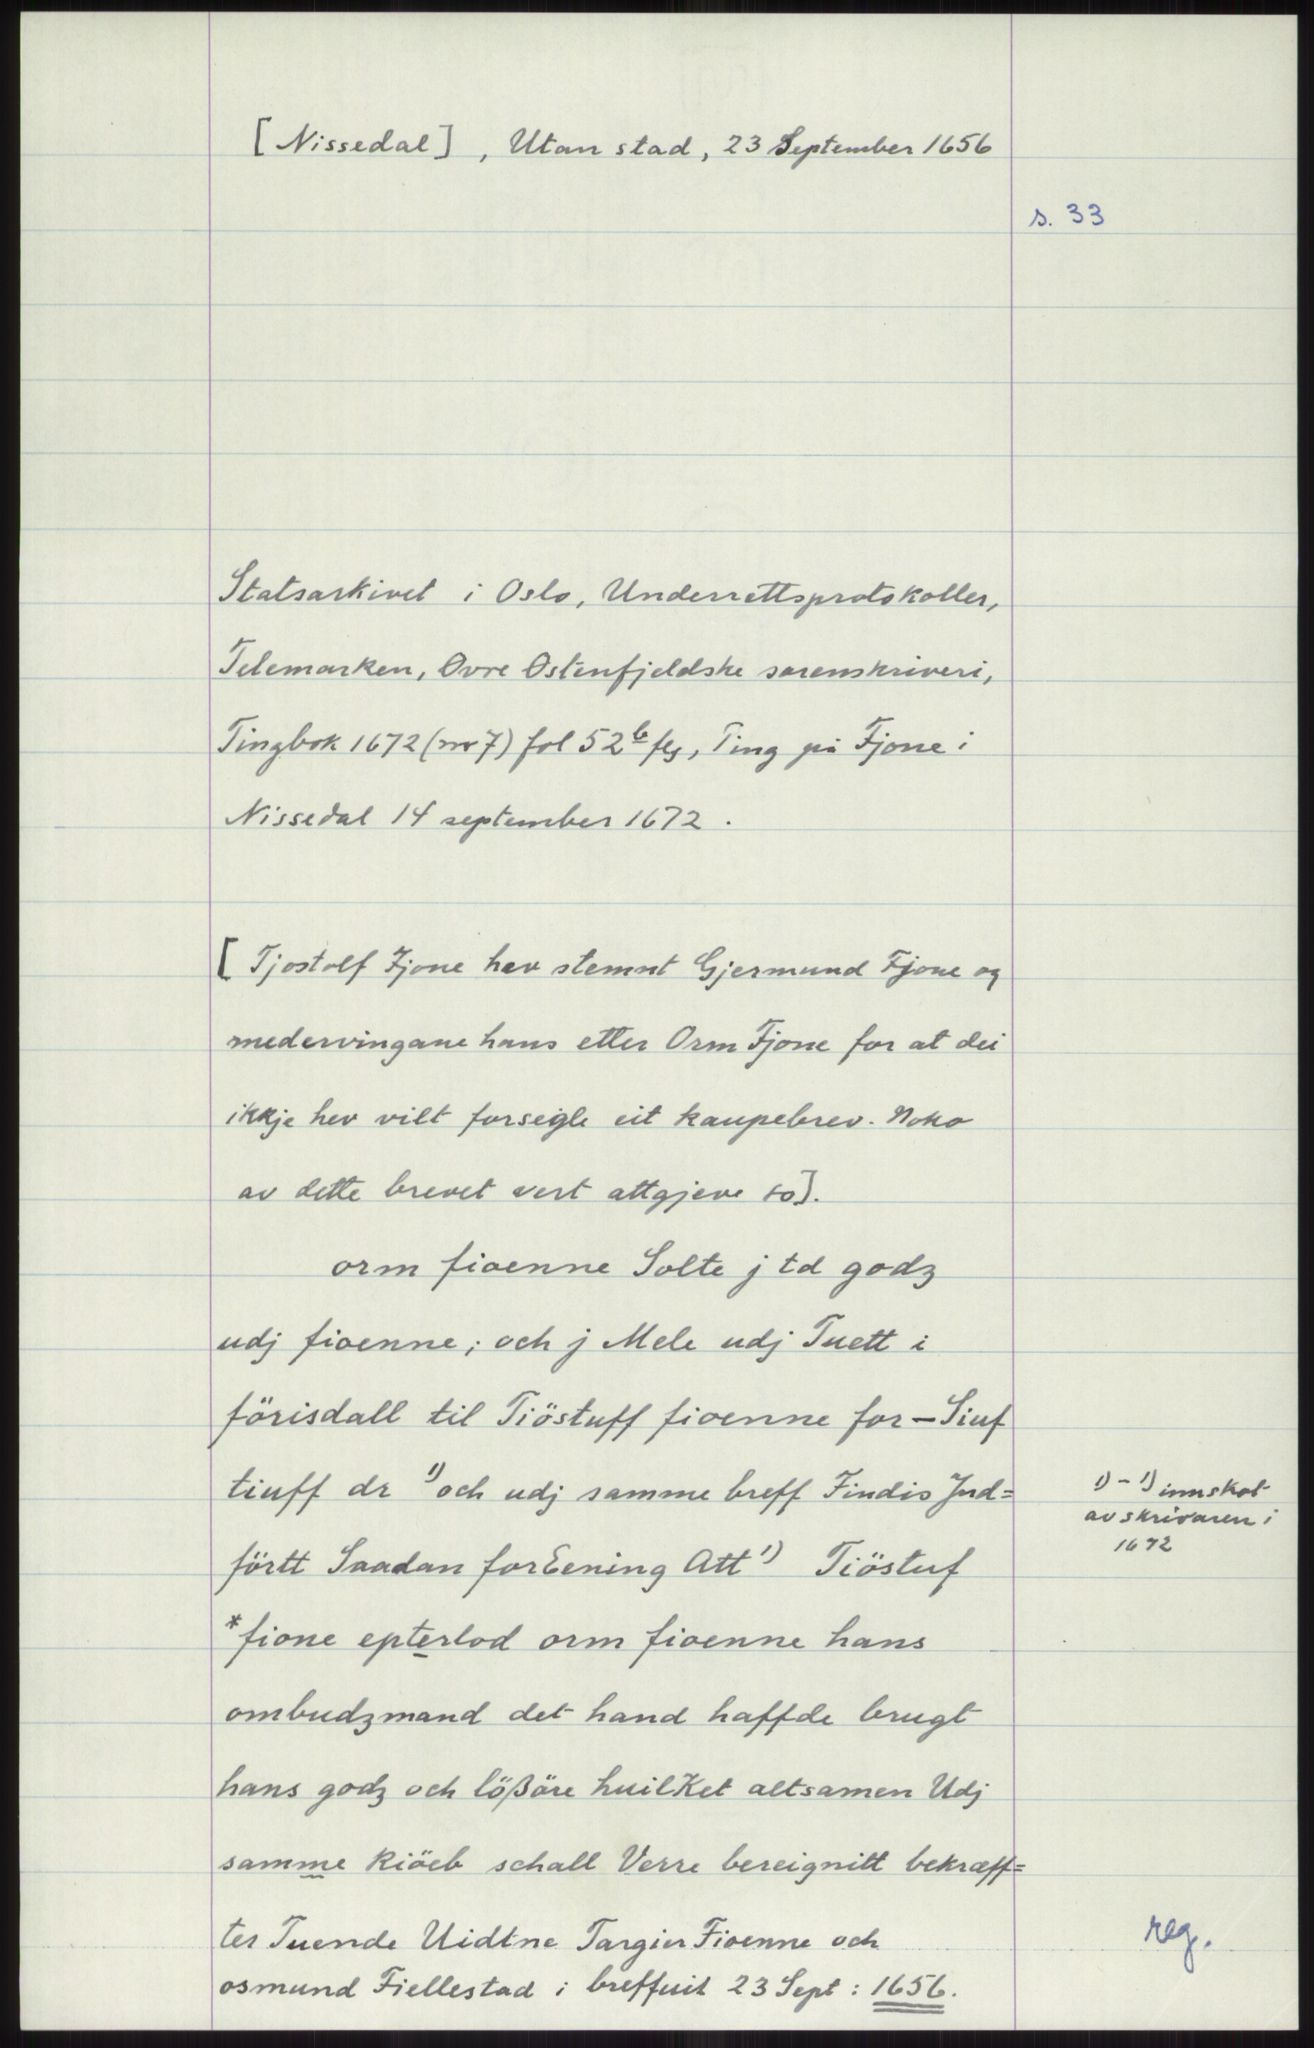 [Nissedal], Utan stad, 23 September 1656
s. 33
Statsarkivet i Oslo, Underrettsprotokoller,
Telemarken, Øvre Østenfjeldske sorenskriveri,
Tingbok 1672 (nr 7) fol 52b flg, Ting på Fjone i
Nissedal 14 september 1672.
[Tjostolf Fjone hev stemnt Gjermund Fjone og
medervingane hans etter Orm Fjone for at dei
ikkje hev vilt forsegle eit kaupebrev. Noko
av dette brevet vert attgjeve so].
orm fioenne Solte j td godz
udj fioenne; och j Mele udj Tuett i
förisdall til Tiöstuff fioenne for – Siuf
tiuff dr 1) och udj samme breff Findis Jnd=
förtt Saadan forEening Att 1) Tiöstuf
1) – 1) innskot
av skrivaren i
1672
*fione epterlod orm fioenne hans
ombudzmand det hand haffde brugt
hans godz och lößöre huilKet altsamen Udj
samme kiöeb schall Verre bereignitt bekræff=
ter Tuende Uidtne Targier Fioenne och
osmund Fiellestad i breffuit 23 Sept: 1656.
reg.